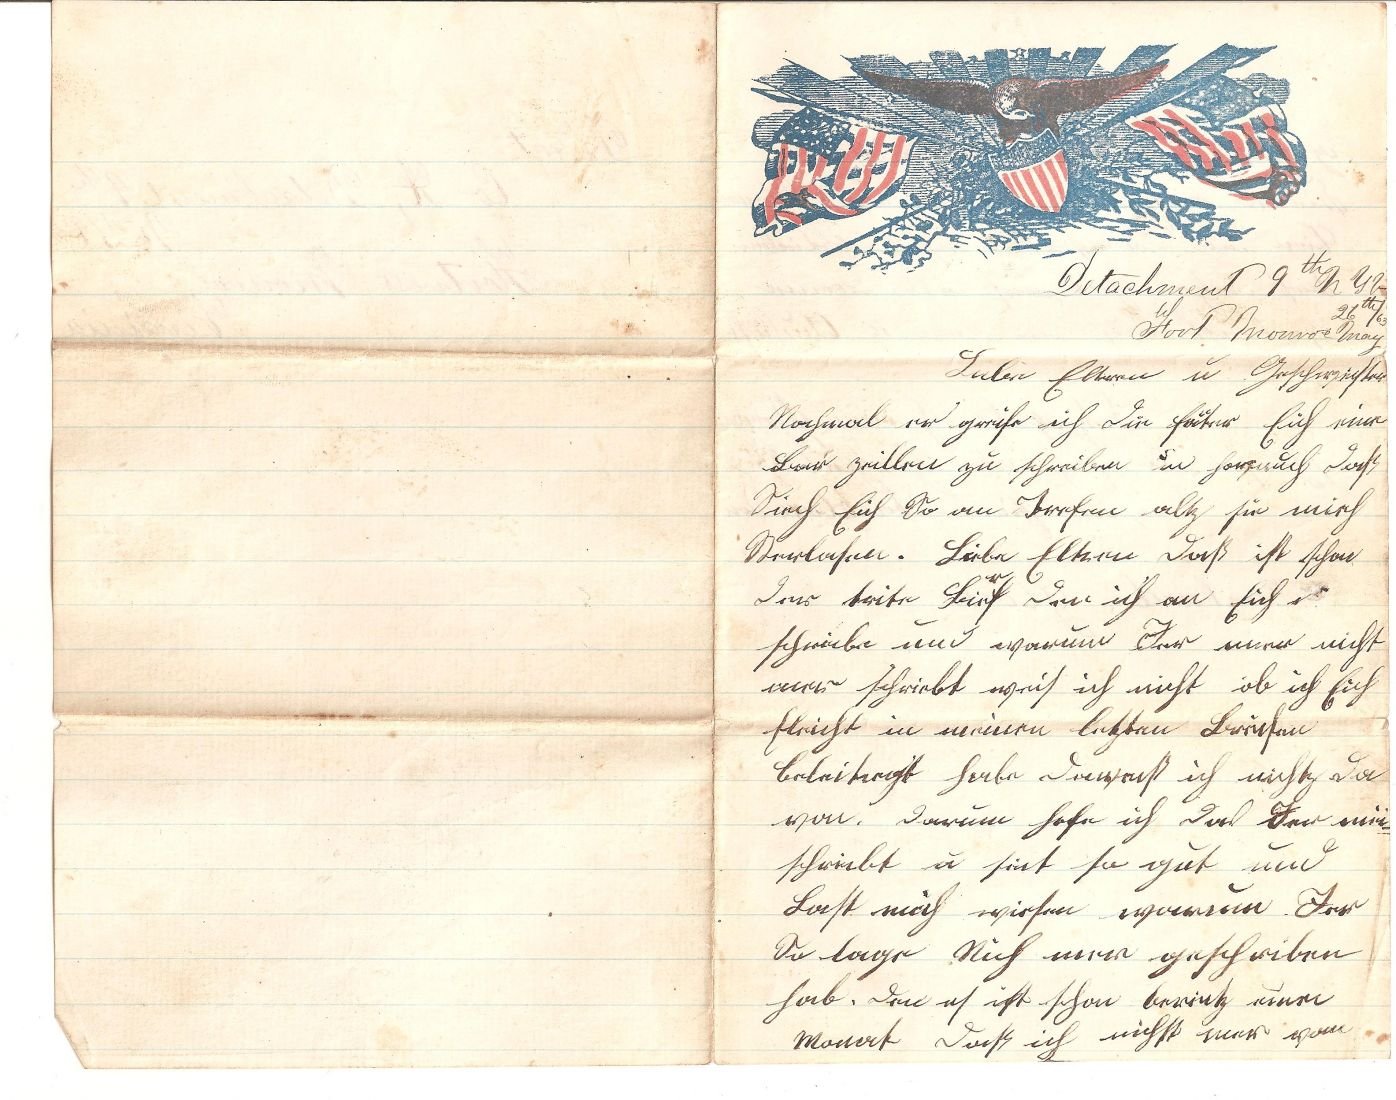 Detachment 9th N Y V
Fort Monroe May 26th/63
Liebe Eltern u Geschwister
Nochmal er greife ich die fäter Eich eine
Bar zeillen zu schreiben in daß
Siech Eich So an Trefen altz sie mich
Verlasen. Liebe Eltern daß ist schon
der trite Brief den ich an Eich
schreibe und warum Ier mer nicht
mer schriebt weis ich nicht ob ich Eich
fleicht in meinen letzten Briefen
beleitiegt habe weiß ich nichtz da
von. darum hofe ich das Ier mir
schriebt u seit so gut und
Last mich wiesen warum Ier
So lage Nich mer geschriben
hab. den es ist schon bereitz einen
Monat daß ich nichst mer von